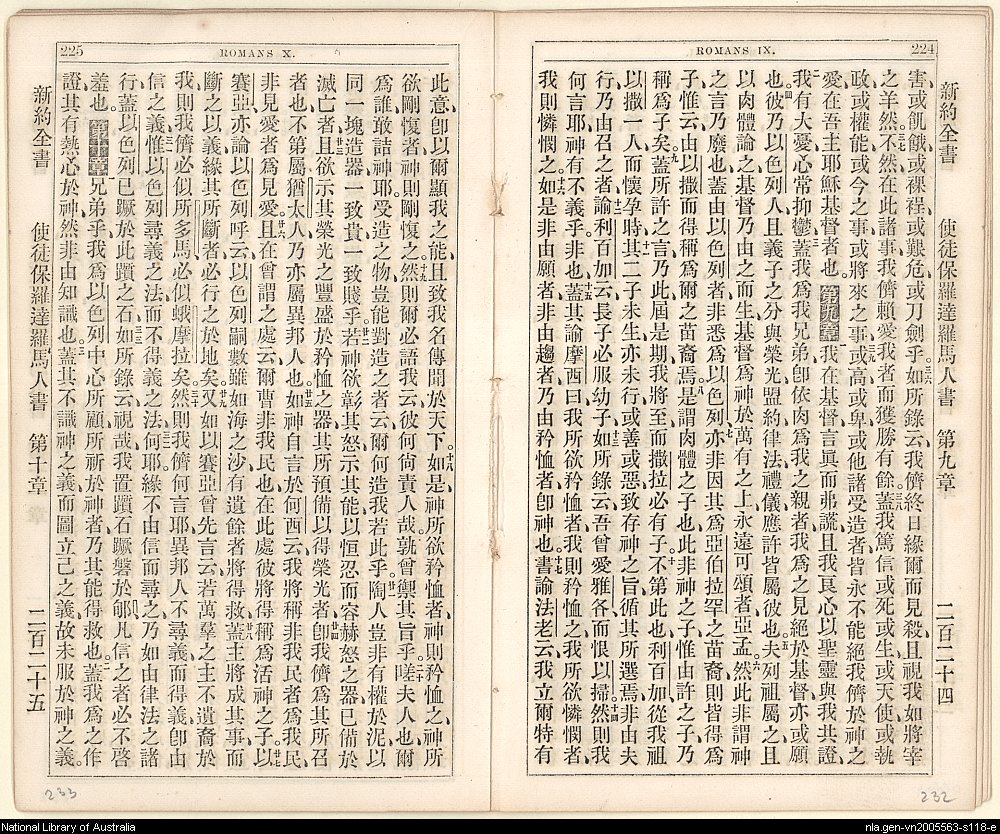 224
ROMANS IX.
新約全書 使徒保羅達羅馬人書 第九章 二百二十四
害、或飢餓、或裸裎、或艱危、或刀劍乎。三六如所錄云、我儕終日緣爾而見殺、且視我如將宰
之羊。三七然不然、在此諸事、我儕賴愛我者而獲勝有餘。三八蓋我篤信、或死、或生、或天使、或執
政、或權能、或今之事、或將來之事、三九或高、或卑、或他諸受造者、皆永不能絕我儕於神之
愛、在吾主耶穌基督者也。第九章我在基督言眞而弗謊、且我良心以聖靈與我共證、
二我有大憂、心常抑鬱。三蓋我爲我兄弟、卽依肉爲我之親者、我爲之見絕於基督、亦或願
也。四彼乃以色列人、且義子之分、與榮光、盟約、律法、禮儀、應許、皆屬彼也。五夫列祖屬之、且
以肉體論之、基督乃由之而生、基督爲神於萬有之上、永遠可頌者、亞孟。六然此非謂神
之言乃廢也、蓋由以色列者、非悉爲以色列、七亦非因其爲亞伯拉罕之苗裔、則皆得爲
子、惟云、由以撒而得稱爲爾之苗裔焉。八是謂肉體之子也、此非神之子、惟由許之子、乃
稱爲子矣。九蓋所許之言、乃此、屆是期我將至、而撒拉必有子。十不第此也、利百加從我祖
以撒一人而懷孕時、十一其二子未生、亦未行或善或惡、致存神之旨、循其所選焉、非由夫
行、乃由召之者、十二諭利百加云、長子必服幼子。十三如所錄云、吾曾愛雅各而恨以掃。十四然則我
何言耶、神有不義乎、非也。十五蓋其諭摩西曰、我所欲矜恤者、我則矜恤之、我所欲憐憫者、
我則憐憫之。十六如是非由願者、非由趨者、乃由矜恤者、卽神也。十七書諭法老云、我立爾特有
225
ROMANS X.
此意、卽以爾顯我之能、且致我名傳聞於天下。十八如是神所欲矜恤者、神則矜恤之、神所
欲剛愎者、神則剛愎之。十九然則爾必語我云、彼何尙責人哉、孰曾禦其旨乎。二十嗟夫人也、爾
爲誰敢詰神耶。受造之物、豈能對造之者云、爾何造我若此乎。廿一陶人豈非有權於泥、以
同一塊造器、一致貴、一致賤乎。廿二若神欲彰其怒、示其能、以恒忍而容赫怒之器、已備於
滅亡者、廿三且欲示其榮光之豐盛於矜恤之器、其所預備以得榮光者、廿四卽我儕爲其所召
者也、不第屬猶太人、乃亦屬異邦人也。廿五如神自言於何西云、我將稱非我民者爲我民、
非見愛者爲見愛。廿六且在曾謂之處云、爾曹非我民也、在此處彼將得稱爲活神之子。廿七以
賽亞亦論以色列呼云、以色列嗣數雖如海之沙、有遺餘者將得救。廿八蓋主將成其事、而
斷之以義、緣其所斷者、必行之於地矣。廿九又如以賽亞曾先言云、若萬羣之主不遺裔於
我、則我儕必似所多馬、必似蛾摩拉矣。三十然則我儕何言耶、異邦人不尋義而得義、卽由
信之義、三一惟以色列尋義之法、而不得義之法。三二何耶、緣不由信而尋之、乃如由律法之諸
行、蓋以色列已蹶於此躓之石、三三如所錄云、視哉、我置躓石蹶磐於郇、凡信之者、必不啓
羞也。第十章兄弟乎、我爲以色列中心所願、所祈於神者、乃其能得救也。二蓋我爲之作
證、其有熱心於神、然非由知識也。三蓋其不識神之義、而圖立己之義、故未服於神之義。
新約全書 使徒保羅達羅馬人書 第十章 二百二十五
233
232
National Library of Australia
nla.gen-vn2005563-s118-e